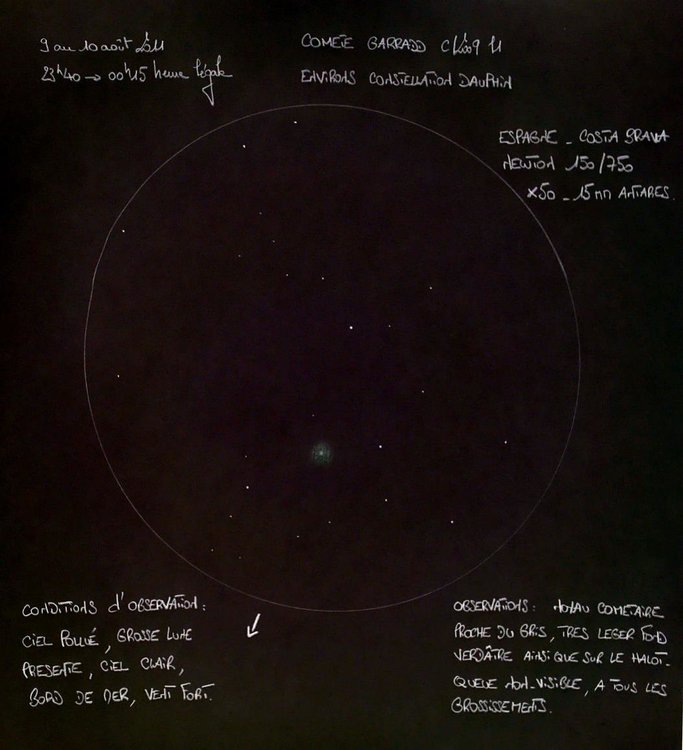 9 au 10 août 2011
23h40 → 00h15 heure légale
COMETE GARRADD C/2009 P1
ENVIRONS CONSTELLATION DAUPHIN
ESPAGNE - COSTA BRAVA
NEWTON 150/750
x50 - 15mm ANTARES.
CONDITIONS d'OBSERVATION :
CIEL POLLUÉ, GROSSE LUNE
PRESENTE, CIEL CLAIR,
BORD DE MER, VENT FORT.
OBSERVATIONS : NOYAU COMETAIRE
PROCHE DU GRIS, TRES LEGER FOND
VERDÂTRE AINSI QUE SUR LE HALO.
QUEUE NON-VISIBLE, A TOUS LES
GROSSISSEMENTS.